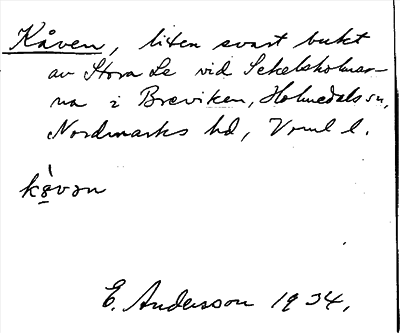 Kåven, liten svart bukt
av Stora Le vid Sekelsholmar-
na i Breviken, Holmedals sn,
Nordmarks hd, Vrml l.
kå̀vən
E. Andersson 1934.